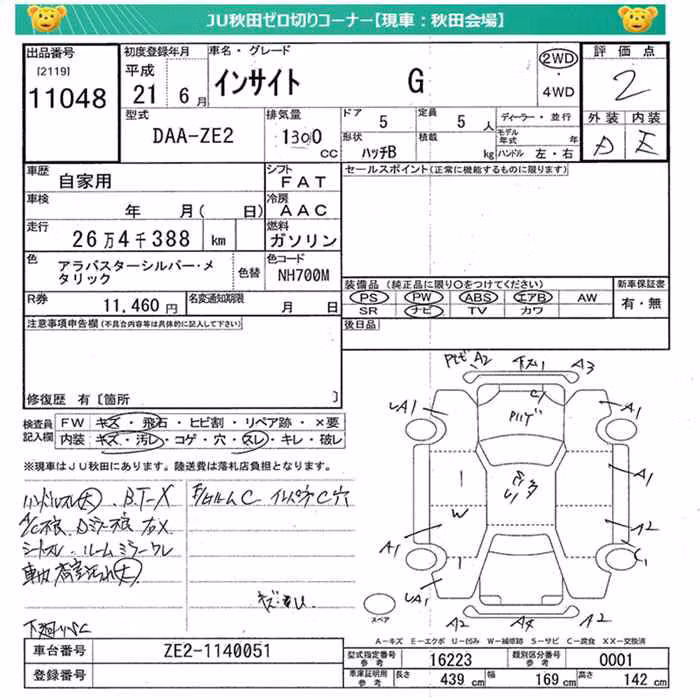 JU秋田ゼロ切りコーナー【現車：秋田会場】
出品番号
[2119]
11048
初度登録年月
平成
21 6月
車名・グレード
インサイト G
2WD
・
4WD
評価点
2
外装 内装
D E
型式
DAA-ZE2
排気量
1300
CC
ドア
5
定員
5人
形状
ハッチB
積載
kg
ディーラー・並行
モデル年式 年
ハンドル 左・右
車歴
自家用
シフト
FAT
車検
年 月( 日)
冷房
AAC
走行
26万4千388 km
燃料
ガソリン
色
アラバスターシルバー・メタリック
色替
色コード
NH700M
R券
11,460円
名変通知期限
月 日
セールスポイント(正常に機能するものに限ります)
装備品(純正品に限り○をつけてください)
PS PW ABS エアB AW
SR ナビ TV カワ
新車保証書
有・無
後日品
注意事項申告欄(不具合内容等は具体的に記入して下さい)
修復歴 有〔箇所 〕
検査員
記入欄
FW キズ・飛石・ヒビ割・リペア跡・×要
内装 キズ・汚レ・コゲ・穴・スレ・キレ・破レ
※現車はJU秋田にあります。陸送費は落札店負担となります。
ハンドルスレ大、B.T-X
シートスレ・ルームミラーワレ
A2
A3
A1
A1
A1
A2
A1
C1
A1
W
A2
A4
A2
スペア
A－キズ E－エクボ U－凹み W－補修跡 S－サビ C－腐食 XX－交換済
車台番号
ZE2-1140051
登録番号
型式指定番号
参考
16223
類別区分番号
参考
0001
車庫証明用
参考
長さ
439 cm
幅
169 cm
高さ
142 cm